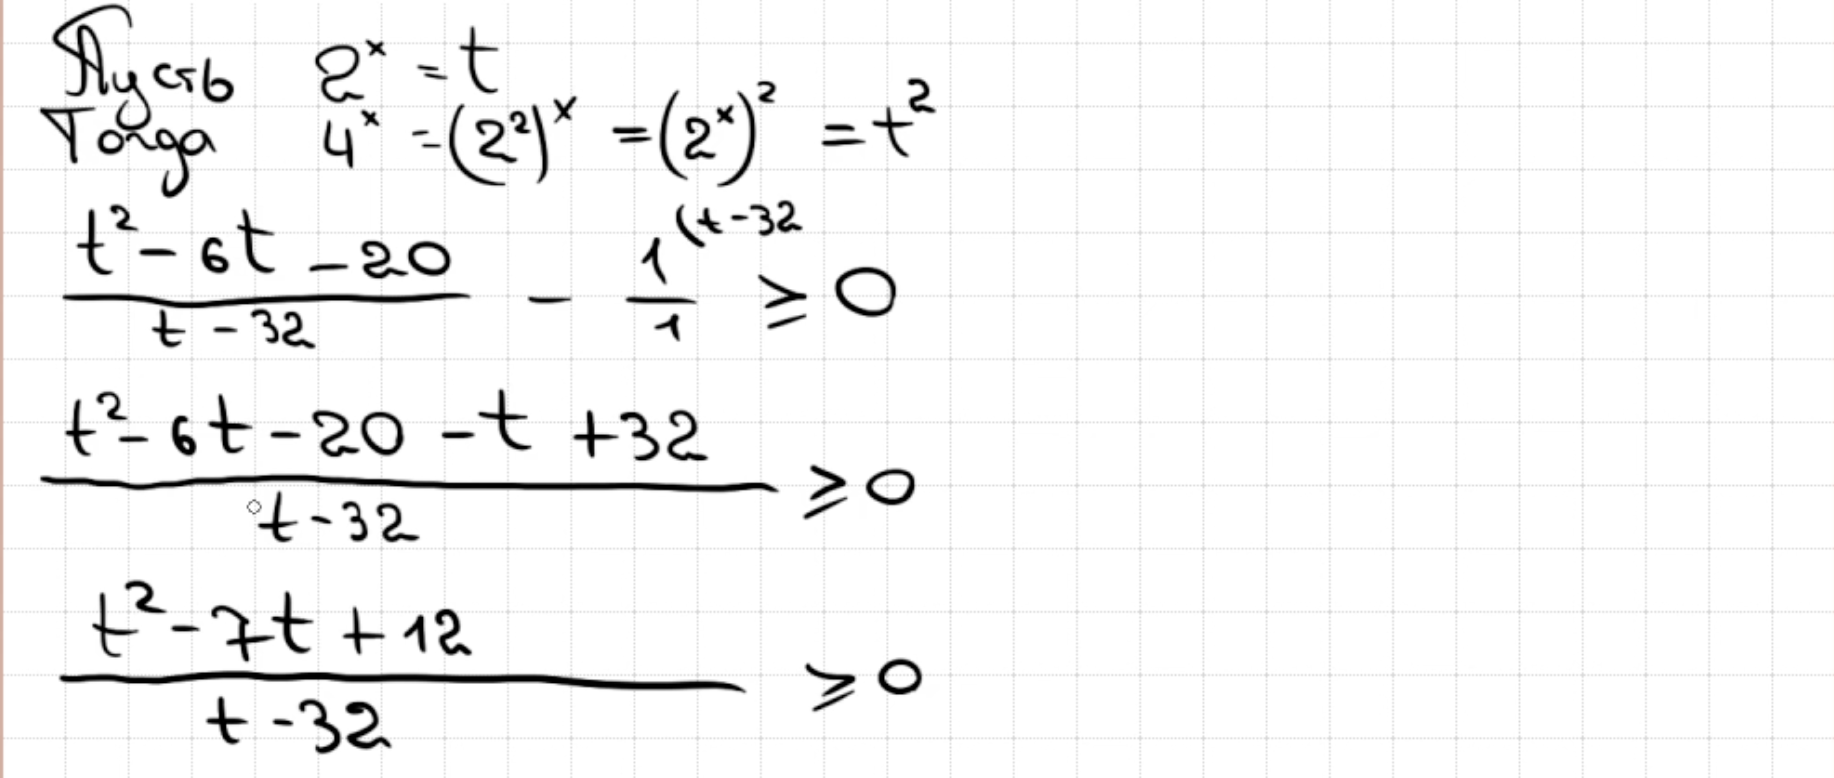 Пусть 2^x = t
Тогда 4^x = (2^2)^x = (2^x)^2 = t^2
(t^2 - 6t - 20)/(t - 32) - 1/1 (t - 32 ≥ 0
(t^2 - 6t - 20 - t + 32)/(t - 32) ≥ 0
(t^2 - 7t + 12)/(t - 32) ≥ 0